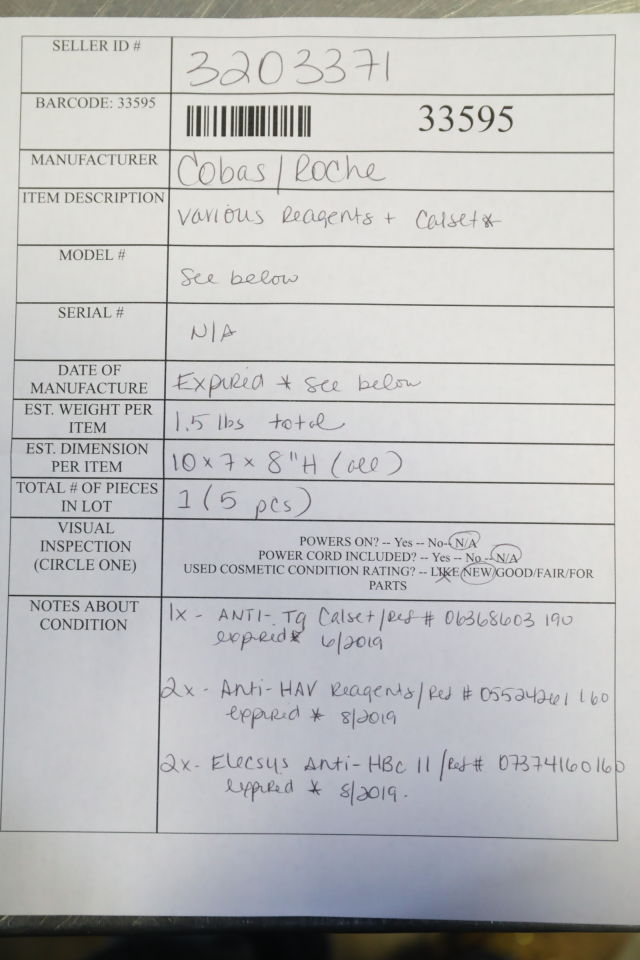 SELLER ID # 3203371
BARCODE: 33595 33595
MANUFACTURER Cobas/Roche
ITEM DESCRIPTION Various Reagents + Calset*
MODEL # See below
SERIAL # N/A
DATE OF
MANUFACTURE Expired * see below
EST. WEIGHT PER
ITEM 1.5 lbs total
EST. DIMENSION
PER ITEM 10 x 7 x 8"H (all)
TOTAL # OF PIECES
IN LOT 1 (5 pcs)
VISUAL
INSPECTION
(CIRCLE ONE)
POWERS ON? -- Yes -- No-- N/A
POWER CORD INCLUDED? -- Yes -- No -- N/A
USED COSMETIC CONDITION RATING? -- LIKE NEW/GOOD/FAIR/FOR
PARTS
NOTES ABOUT
CONDITION
1x - ANTI-Tg Calset/Ref # 06368603 190
expired* 6/2019
2x - Anti-HAV Reagents/Ref # 05524261 160
expired * 8/2019
2x- Elecsys Anti-HBc II/Ref# 07374160160
expired * 8/2019.